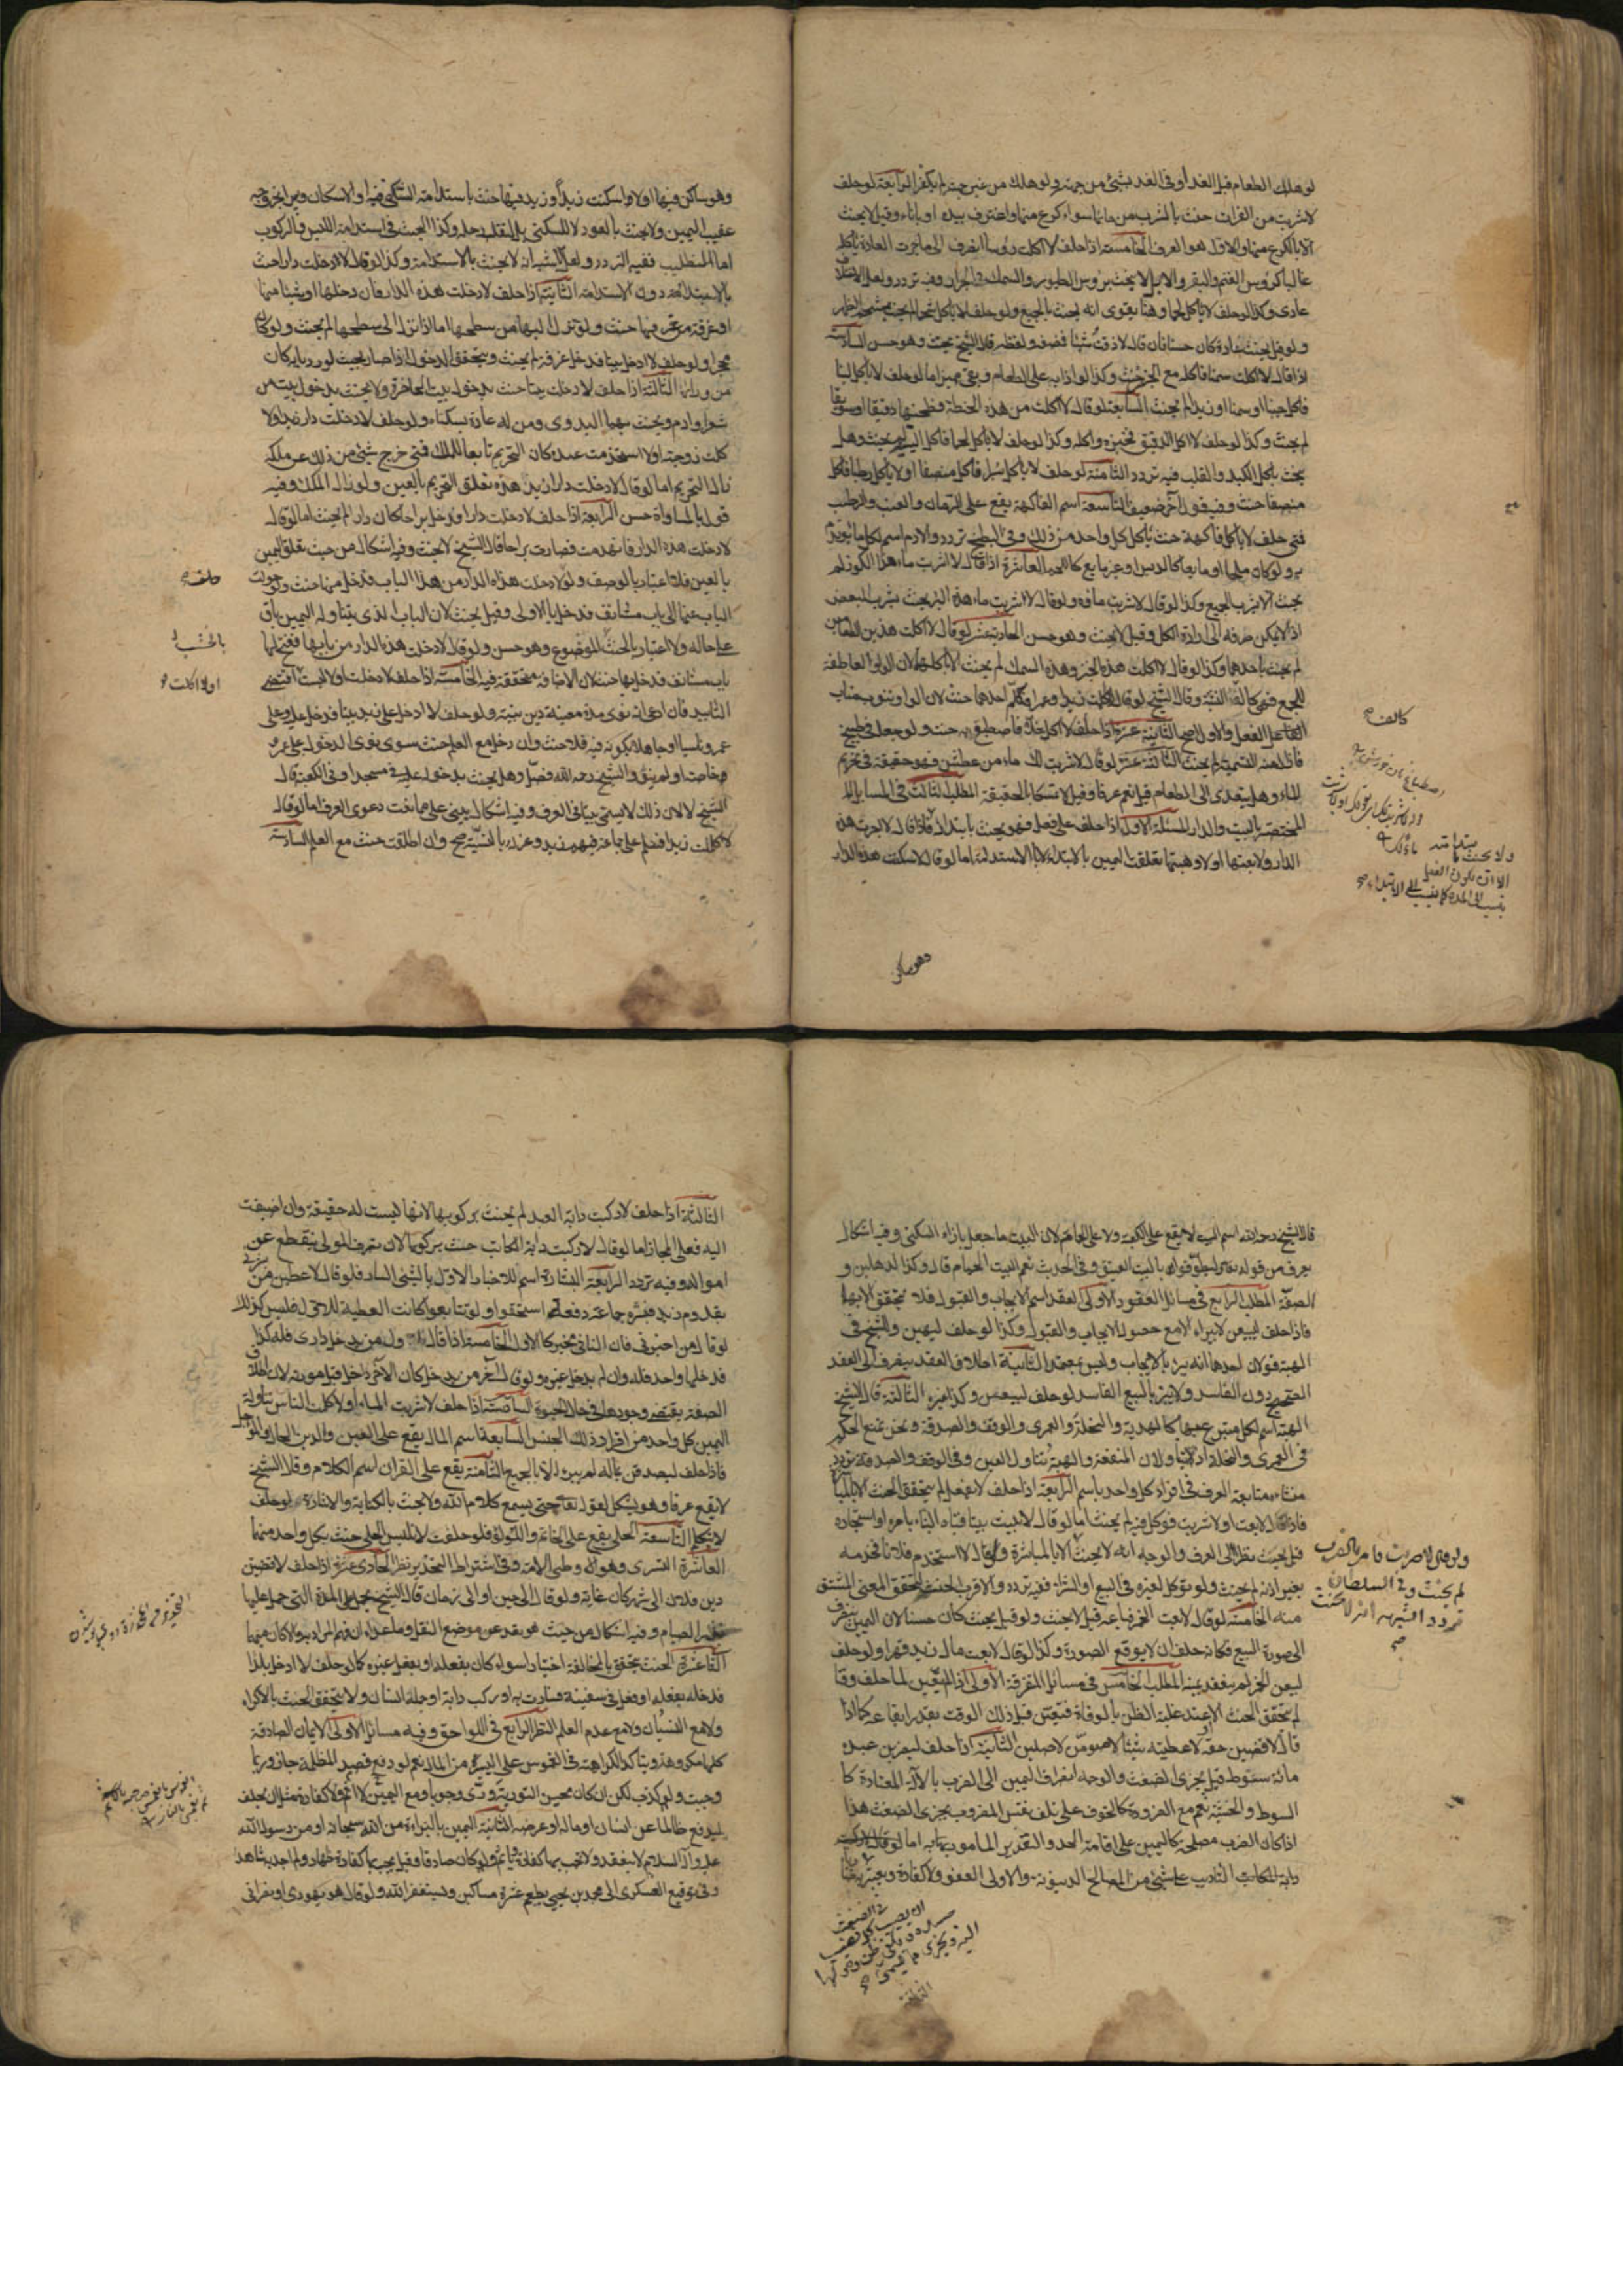 لو هلك الطعام قبل الغد أو في الغد بشيء من جهته ولو هلك من غير جهته لم يكفر الرابعة لو حلف
لا شربت من الفرات حنث بالشرب من مائها سواء كرع منها أو اغترف بيده أو باناء وقيل لا يحنث
الا بالكرع منها والاول هو العرف الخامسة اذا حلف لا اكلت رؤسا انصرف الى ما جرت العادة باكله
غالبا كرؤس الغنم والبقر والابل لا يحنث برؤس الطيور والسمك والجراد وفيه تردد ولعل الاختلاف
عادي وكذا لو حلف لا ياكل لحما وهنا يقوى انه يحنث بالجميع ولو حلف لا ياكل شحما لم يحنث بشحم الظهر
ولو قيل يحنث عادة كان حسنا فان قال لا ذقت شيئا فمضغه ولفظه قال الشيخ يحنث وهو حسن السادسة
اذا قال لا اكلت سمنا فاكله مع الخبز حنث وكذا لو اذابه على الطعام وبقي مميزا اما لو حلف لا ياكل لبنا
فاكل جبنا او سمنا او زبدا لم يحنث السابعة لو قال لا اكلت من هذه الحنطة فطحنها دقيقا او سويقا
لم يحنث وكذا لو حلف لا اكل الدقيق فخبزه واكله وكذا لو حلف لا ياكل لحما فاكل الية لم يحنث وهل
يحنث باكل الكبد والقلب فيه تردد الثامنة لو حلف لا ياكل بسرا فاكل منصفا او لا ياكل رطبا فاكل
منصفا حنث وفيه قول آخر ضعيف التاسعة اسم الفاكهة يقع على الرمان والعنب والرطب
فمتى حلف لا ياكل فاكهة حنث باكل كل واحد من ذلك وفي البطيخ تردد والادم اسم لكل ما يؤتدم
به ولو كان ملحا او مايعا كالدبس او غير مايع كاللحم العاشرة اذا قال لا شربت ماء هذا الكوز لم
يحنث الا بشرب الجميع وكذا لو قال لا شربت ماءه ولو قال لا شربت ماء هذه البئر يحنث بشرب البعض
اذ لا يمكن صرفه الى ارادة الكل وقيل لا يحنث وهو حسن الحادية عشر لو قال لا اكلت هذين الطعامين
لم يحنث باحدهما وكذا لو قال لا اكلت هذا الخبز وهذه السمك لم يحنث الا باكلهما لان الواو العاطفة
للجمع فهي كالف التثنية وقال الشيخ لو قال لا كلمت زيدا وعمرا فكلم احدهما حنث لان الواو ينوب مناب
الفعل والاول اصح الثانية عشرة اذا حلف لا اكل خلا فاصطبغ به حنث ولو جعل في طبيخ
فازال عنه التسمية لم يحنث الثالثة عشر لو قال لا شربت لك ماء من عطش فهو حقيقة في تحريم
الماء وهل يتعدى الى الطعام قيل نعم عرفا وقيل لا تمسكا بالحقيقة المطلب الثالث في المسائل
المختصة بالبيت والدار المسئلة الاولى اذا حلف على فعل فهو يحنث بابتدائه فاذا قال لا اجرت هذه
الدار ولا بعتها او لا وهبتها تعلقت اليمين بالابتداء لا بالاستدامة اما لو قال لا سكنت هذه الدار
كالف صح
ولا يحنث باستدامته
الا ان يكون الفعل
ينسب الى المدة كما ينسب الى الابتداء صح
وهو ساكن
وهو ساكن فيها او لا اسكنت زيدا وزيد فيها حنث باستدامة السكنى فيه او الاسكان ويبر بخروجه
عقيب اليمين ولا يحنث بالعود لا للسكنى بل لنقل رحله وكذا البحث في استدامة اللبس والركوب
اما التطيب ففيه التردد ولعل الاشبه انه لا يحنث بالاستدامة وكذا لو قال لا دخلت دارا حنث
بالابتداء دون الاستدامة الثانية اذا حلف لا دخلت هذه الدار فان دخلها او شيئا منها
او غرفة من غرفها حنث ولو نزل اليها من سطحها اما اذا نزل الى سطحها لم يحنث ولو كان
محجرا ولو حلف لا ادخل بيتا فدخل غرفة لم يحنث ويتحقق الدخول اذا صار بحيث لو رد بابه كان
من ورائه الثالثة اذا حلف لا دخلت بيتا حنث بدخول بيت الحاضرة ولا يحنث بدخول بيت من
شعر او ادم ويحنث بهما البدوي ومن له عادة بسكناه ولو حلف لا دخلت دار زيد او لا
كلمت زوجته او لا استخدمت عبده كان التحريم تابعا للملك فمتى خرج شيء من ذلك عن ملكه
زال التحريم اما لو قال لا دخلت دار زيد هذه تعلق التحريم بالعين ولو زال الملك وفيه
قول بالمساواة حسن الرابعة اذا حلف لا دخلت دارا فدخل براحا كان دارا لم يحنث اما لو قال
لا دخلت هذه الدار فانهدمت فصارت براحا قال الشيخ لا يحنث وفيه اشكال من حيث تعلق اليمين
بالعين فلا اعتبار بالوصف ولو لا دخلت هذه الدار من هذا الباب فدخل منها حنث ولو حولت
الباب عنها الى باب مستانف فدخل بالاولى وقيل يحنث لان الباب الذي يتناوله اليمين باق
على حاله ولا اعتبار بالخشب الموضوع وهو حسن ولو قال لا دخلت هذه الدار من بابها ففتح لها
باب مستانف فدخل بها حنث لان الاضافة متحققة فيه الخامسة اذا حلف لا دخلت او لا لبست اقتضى
التابيد فان ادعى انه نوى مدة معينة دين بنيته ولو حلف لا ادخل على زيد بيتا فدخل عليه وعلى
عمرو ناسيا او جاهلا بكونه فيه فلا حنث وان دخل مع العلم حنث سوى نوى الدخول على عمرو
خاصة او لم ينو والشيخ رحمه الله فصل وهل يحنث بدخوله عليه في مسجد او في الكعبة قال
الشيخ لا لان ذلك لا يسمى بيتا في العرف وفيه اشكال يبنى على ممانعت دعوى العرف اما لو قال
لا كلمت زيدا فسلم على جماعة فيهم زيد وعزله بالنية صح وان اطلقت حنث مع العلم السادسة
حلف صح
بالخشب
او لا اكلت
قال الشيخ رحمه الله اسم البيت لا يقع على الكعبة ولا على الحمام لان البيت ما جعل بازاء السكنى وفيه اشكال
يعرف من قوله تعالى وليطوفوا بالبيت العتيق وفي الحديث نعم البيت الحمام قال وكذا الدهليز و
الصفة المطلب الرابع في مسائل العقود الاولى العقد اسم للايجاب والقبول فلا يتحقق الا بهما
فاذا حلف ليبيعن لا يبرء الا مع حصول الايجاب والقبول وكذا لو حلف ليهبن والشيخ في
الهبة قولان احدهما انه يبر بالايجاب وليس بمعتمد الثانية اطلاق العقد ينصرف الى العقد
الصحيح دون الفاسد ولا يبر بالبيع الفاسد لو حلف ليبيعن وكذا غيره الثالثة قال الشيخ
الهبة اسم لكل متبرع بها كالهدية والنحلة والعمرى والوقف والصدقة ونحن نمنع الحكم
في العمرى والنحلة اذ يتناولان المنفعة والهبة تتناول العين وفي الوقف والصدقة تردد
منشاءه متابعة العرف في افراد كل واحد باسم الرابعة اذا حلف لا يفعل لم يتحقق الحنث الا بالمباشرة
فاذا قال لا بعت او لا شريت فوكل فيه لم يحنث اما لو قال لا بنيت بيتا فبناه البناء بامره او استجاره
قيل يحنث نظرا الى العرف والوجه انه لا يحنث الا بالمباشرة ولو قال لا استخدم فلانا فخدمه
بغير اذنه لم يحنث ولو توكل لغيره في البيع او الشراء ففيه تردد والاقرب الحنث لتحقق المعنى المشتق
منه الخامسة لو قال لا بعت الخمر فباعه قيل لا يحنث ولو قيل يحنث كان حسنا لان اليمين ينصرف
الى صورة البيع فكانه حلف ان لا يوقع الصورة وكذا لو قال لا بعت مال زيد قهرا ولو حلف
ليبيعن الخمر لم ينعقد يمينه المطلب الخامس في مسائل المتفرقة الاولى اذا لم يعين لما حلف وقتا
لم يتحقق الحنث الا عند غلبة الظن بالوفاة فيتعين قبل ذلك الوقت بقدر ايقاعه كما اذا
قال لاقضين حقه او لاعطينه شيئا او لاصومن او لاصلين الثانية اذا حلف ليضربن عبده
مائة سوط قيل يجزي الضغث والوجه انصراف اليمين الى الضرب بالآلة المعتادة كا
السوط والخشبة نعم مع الضرورة كالخوف على تلف نفس المضروب يجزي الضغث هذا
اذا كان الضرب مصلحة كاليمين على اقامة الحد والتعزير المامور به اما لو قال لا ركبت
دابة المكاتب التاديب على شيء من المصالح الدنيوية والاولى العفو ولا كفارة ويعتبر في
ولو قال لا ضربت فامر بالضرب
لم يحنث وفي السلطان
تردد اشبهه انه لا يحنث
صح
الثالثة
الثالثة اذا حلف لا ركبت دابة العبد لم يحنث بركوبها لانها ليست له حقيقة وان اضيفت
اليه فعلى المجاز اما لو قال لا ركبت دابة المكاتب حنث بركوبها لان تصرف المولى ينقطع عن
امواله وفيه تردد الرابعة البشارة اسم للاخبار الاول بالشيء السار فلو قال لاعطين من بشرني
بقدوم زيد فبشره جماعة دفعة استحقوا ولو تتابعوا كانت العطية للاول وليس كذلك
لو قال من اخبرني فان الثاني مخبر كالاول الخامسة اذا قال اول من يدخل داري فله كذا
فدخلها واحد فله وان لم يدخل غيره ولو قال آخر من يدخل كان الآخر داخل قبل موته لان اطلاق
الصفة يقتضي وجودها في حال الحيوة السادسة اذا حلف لا شربت الماء او لا كلمت الناس تناولت
اليمين كل واحد من افراد ذلك الجنس السابعة اسم المال يقع على العين والدين الحال والمؤجل
فاذا حلف ليصدقن بماله لم يبرء الا بالجميع الثامنة يقع على القران اسم الكلام وقال الشيخ
لا يقع عرفا وهو يشكل لقوله تعالى حتى يسمع كلام الله ولا يحنث بالكتابة والاشارة لو حلف
لا يتكلم التاسعة الحلي يقع على الخاتم واللؤلؤ فلو حلفت لا تلبس الحلي حنث بكل واحد منهما
العاشرة التسري وهو وطي الامة وفي اشتراط التخدير نظر الحادي عشرة اذا حلف لاقضين
دين فلان الى شهر كان غاية ولو قال الى حين او الى زمان قال الشيخ يحمل على المدة التي حمل عليها
نذر الصيام وفيه اشكال من حيث هو بعد عن موضع النقل وما عداه ان فهم المراد به والا كان مبهما
الثانية عشرة الحنث يتحقق بالمخالفة اختيارا سواء كان بفعله او بفعل غيره كما لو حلف لا ادخل بلدا
فدخله بفعله او قعد في سفينة فسارت به او ركب دابة او حمله انسان ولا يتحقق الحنث بالاكراه
ولا مع النسيان ولا مع عدم العلم النظر الرابع في اللواحق وفيه مسائل الاولى الايمان الصادقة
كلها مكروهة ويتاكد الكراهة في الغموس على اليسير من المال نعم لو دفع المظلمة جاز وربما
وجبت ولو كذب لكن ان كان يحسن التورية ورى وجوبا ومع اليمين لا اثم ولا كفارة مثل ان يحلف
ليدفع ظالما عن انسان او ماله او عرضه الثانية اليمين بالبراءة من الله سبحانه او من رسول الله
عليه وآله السلام لا ينعقد ولا تجب بها كفارة وياثم ولو كان صادقا وقيل يجب بها كفارة ظهار ولم اجد به شاهدا
وفي توقيع العسكري الى محمد بن يحيى يطعم عشرة مساكين ويستغفر الله ولو قال هو يهودي او نصراني